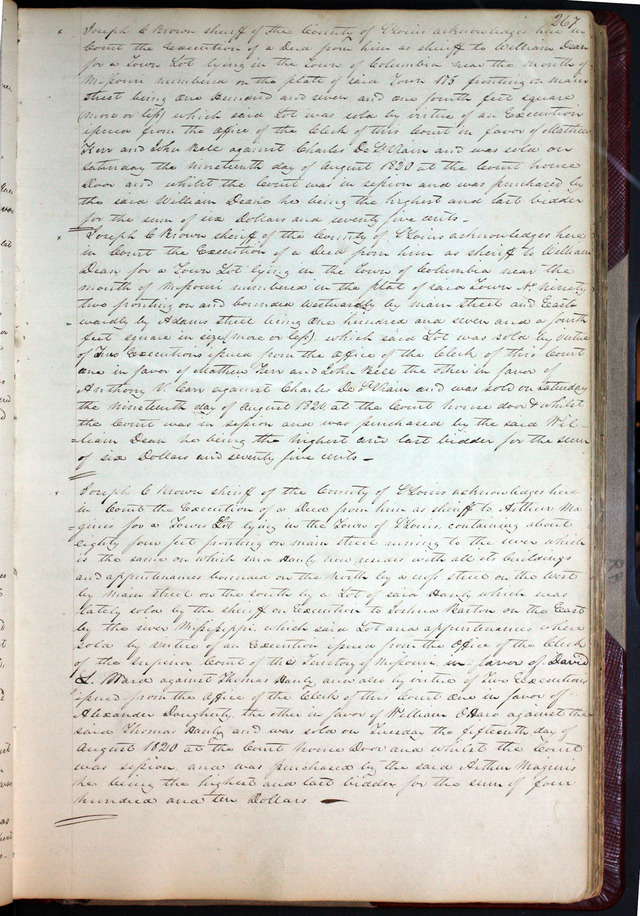 267
Joseph C Brown sheriff of the County of St Louis acknowledges here in
Court the Execution of a Deed from him as sheriff to William Dean
for a Town Lot lying in the Town of Columbia near the mouth of
Missouri numbered on the plat of said Town 175 fronting on main
street being one hundred and seven and one fourth feet square
(more or less) which said Lot was sold by virtue of an Execution
issued from the office of the Clerk of this Court in favor of Mathew
Kerr and John Bell against Charles De St Vrain and was sold on
Saturday the nineteenth day of August 1820 at the Court house
Door and whilst the Court was in session and was purchased by
the said William Deane he being the highest and last bidder
for the sum of six Dollars and seventy five cents -
Joseph C Brown sheriff of the County of St Louis acknowledges here
in Court the Execution of a Deed from him as sheriff to William
Dean for a Town Lot lying in the Town of Columbia near the
mouth of Missouri numbered in the plat of said Town No. ninety
two fronting on and bounded Westwardly by main street and East=
=wardly by Adams street being one hundred and seven and a fourth
feet square in size (more or less) which said Lot was sold by virtue
of Two Executions issued from the office of the Clerk of this Court
one in favor of Mathew Kerr and John Bell the other in favor of
Anthony V. Carr against Charles De St Vrain and was sold on Saturday
the nineteenth day of August 1820, at the Court house door & whilst
the Court was in session and was purchased by the said Wil=
=liam Dean he being the highest and last bidder for the sum
of six Dollars and seventy five cents -
Joseph C Brown sheriff of the County of St Louis acknowledges here
in Court the Execution of a Deed from him as sheriff to Arthur Ma
=ginis for a Town Lot lying in the Town of St Louis, containing about
eighty four feet fronting on main street running to the river which
is the same on which said Hanly now resides with all its buildings
and appurtenances bounded on the North by a cross street on the West
by main street on the south by a Lot of said Hanly which was
lately sold by the sheriff on Execution to Joshua Barton on the East
by the river Mississippi which said Lot and appurtenances where
sold by virtue of an Execution issued from the Office of the Clerk
of the Superior Court of the Territory of Missouri in favor of David
S. Ward against Thomas Hanly and also by virtue of Two Executions
issued from the office of the Clerk of this Court one in favor of
Alexander Daugherty, the other in favor of William OHara against the
said Thomas Hanly and was sold on Tuesday the fifteenth day of
August 1820 at the Court house Door and whilst the Court
was session, and was purchased by the said Arthur Maginis
he being the highest and last bidder for the sum of four
hundred and ten Dollars —